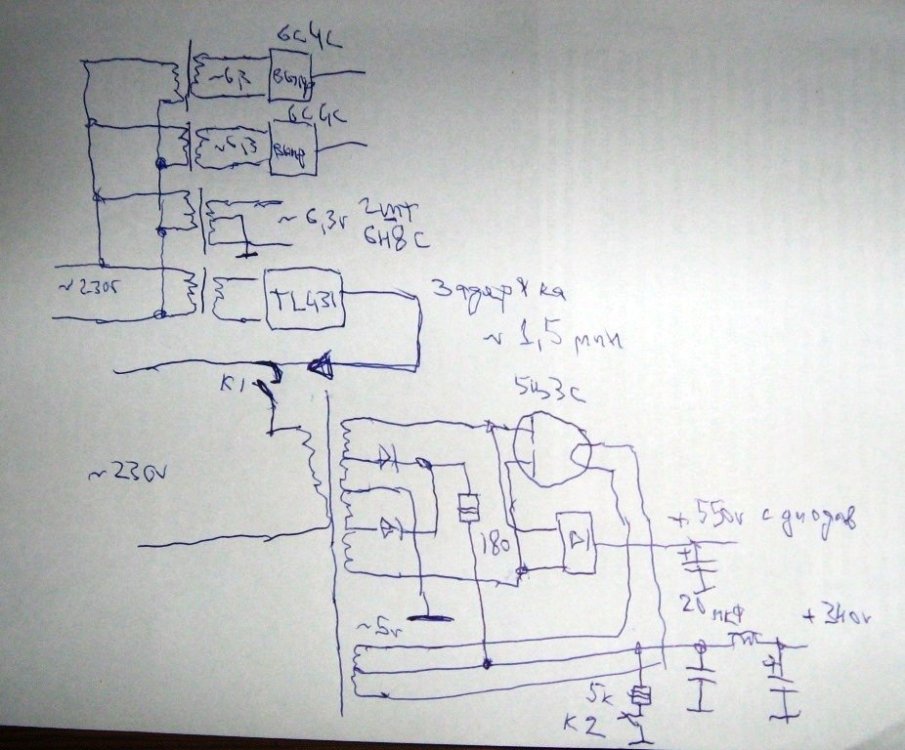 6С4С
~6,3
Выпр
6С4С
~6,3
Выпр
~6,3v 2шт
6Н8С
~230v
TL431
Задержка
~1,5 мин
К1
5Ц3С
~230v
180
+550v с диодов
20 мкф
~5v
+340v
5к
К2